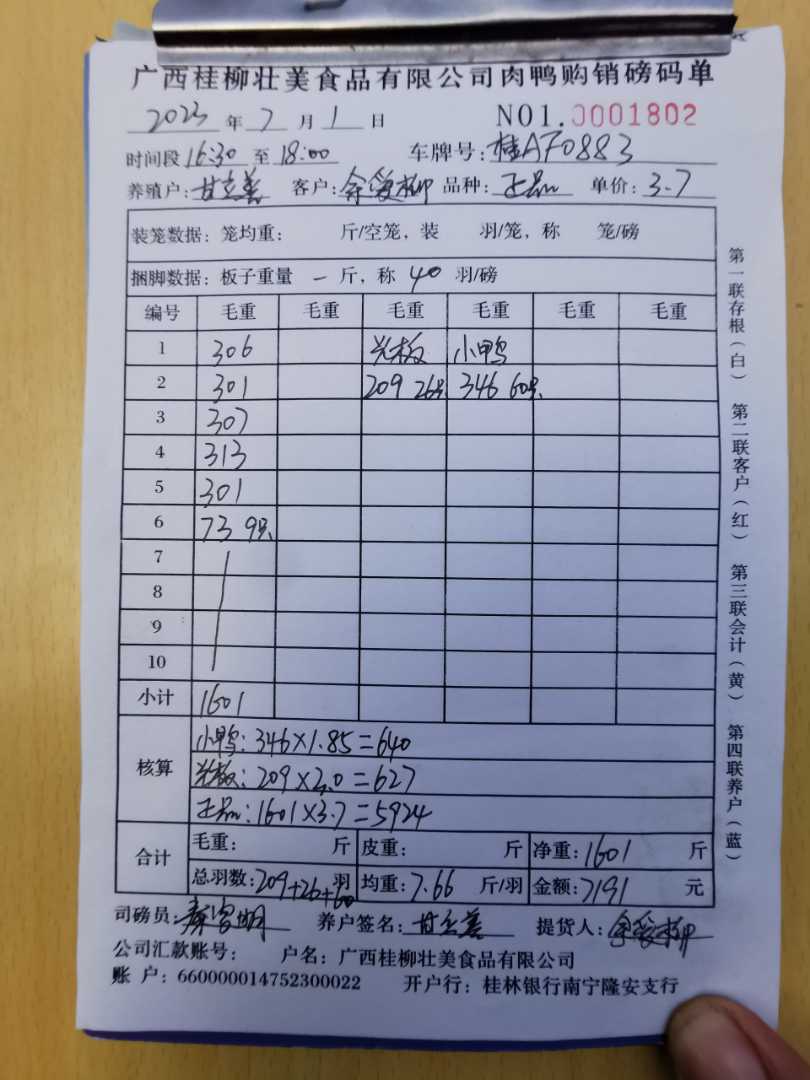 广西桂柳壮美食品有限公司肉鸭购销磅码单
2023 年 7 月 1 日 NO1.0001802
时间段 16:30 至 18:00 车牌号: 桂AF0883
养殖户: 甘立善 客户: 余爱柳 品种: 正品 单价: 3.7
装笼数据: 笼均重: 斤/空笼, 装 羽/笼, 称 笼/磅
捆脚数据: 板子重量 一 斤, 称 40 羽/磅
编号 毛重 毛重 毛重 毛重 毛重 毛重
1 306 光板 小鸭
2 301 209 26只 346 60只
3 307
4 313
5 301
6 73 9只
7
8
9
10
小计 1601
核算
小鸭: 346×1.85=640
光板: 209×3.0=627
正品: 1601×3.7=5924
合计
毛重: 斤 皮重: 斤 净重: 1601 斤
总羽数: 209+26+60 羽 均重: 7.66 斤/羽 金额: 7191 元
司磅员: 养户签名: 甘立善 提货人: 余爱柳
公司汇款账号: 户名: 广西桂柳壮美食品有限公司
账 户: 660000014752300022 开户行: 桂林银行南宁隆安支行
第一联存根(白) 第二联客户(红) 第三联会计(黄) 第四联养户(蓝)